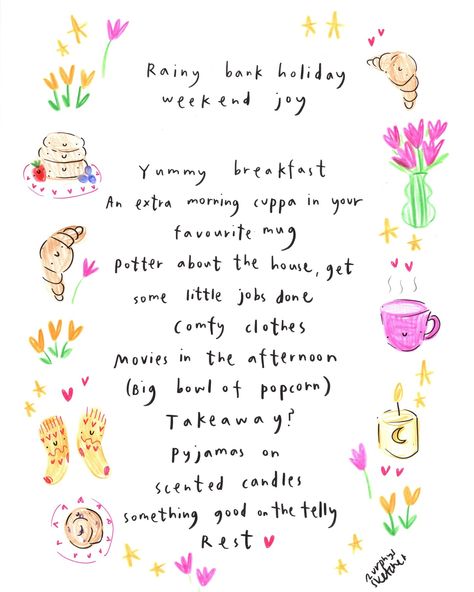 Rainy bank holiday
weekend joy
Yummy breakfast
An extra morning cuppa in your
favourite mug
Potter about the house, get
some little jobs done
Comfy clothes
Movies in the afternoon
(Big bowl of popcorn)
Takeaway?
Pyjamas on
scented candles
something good on the telly
Rest ♥